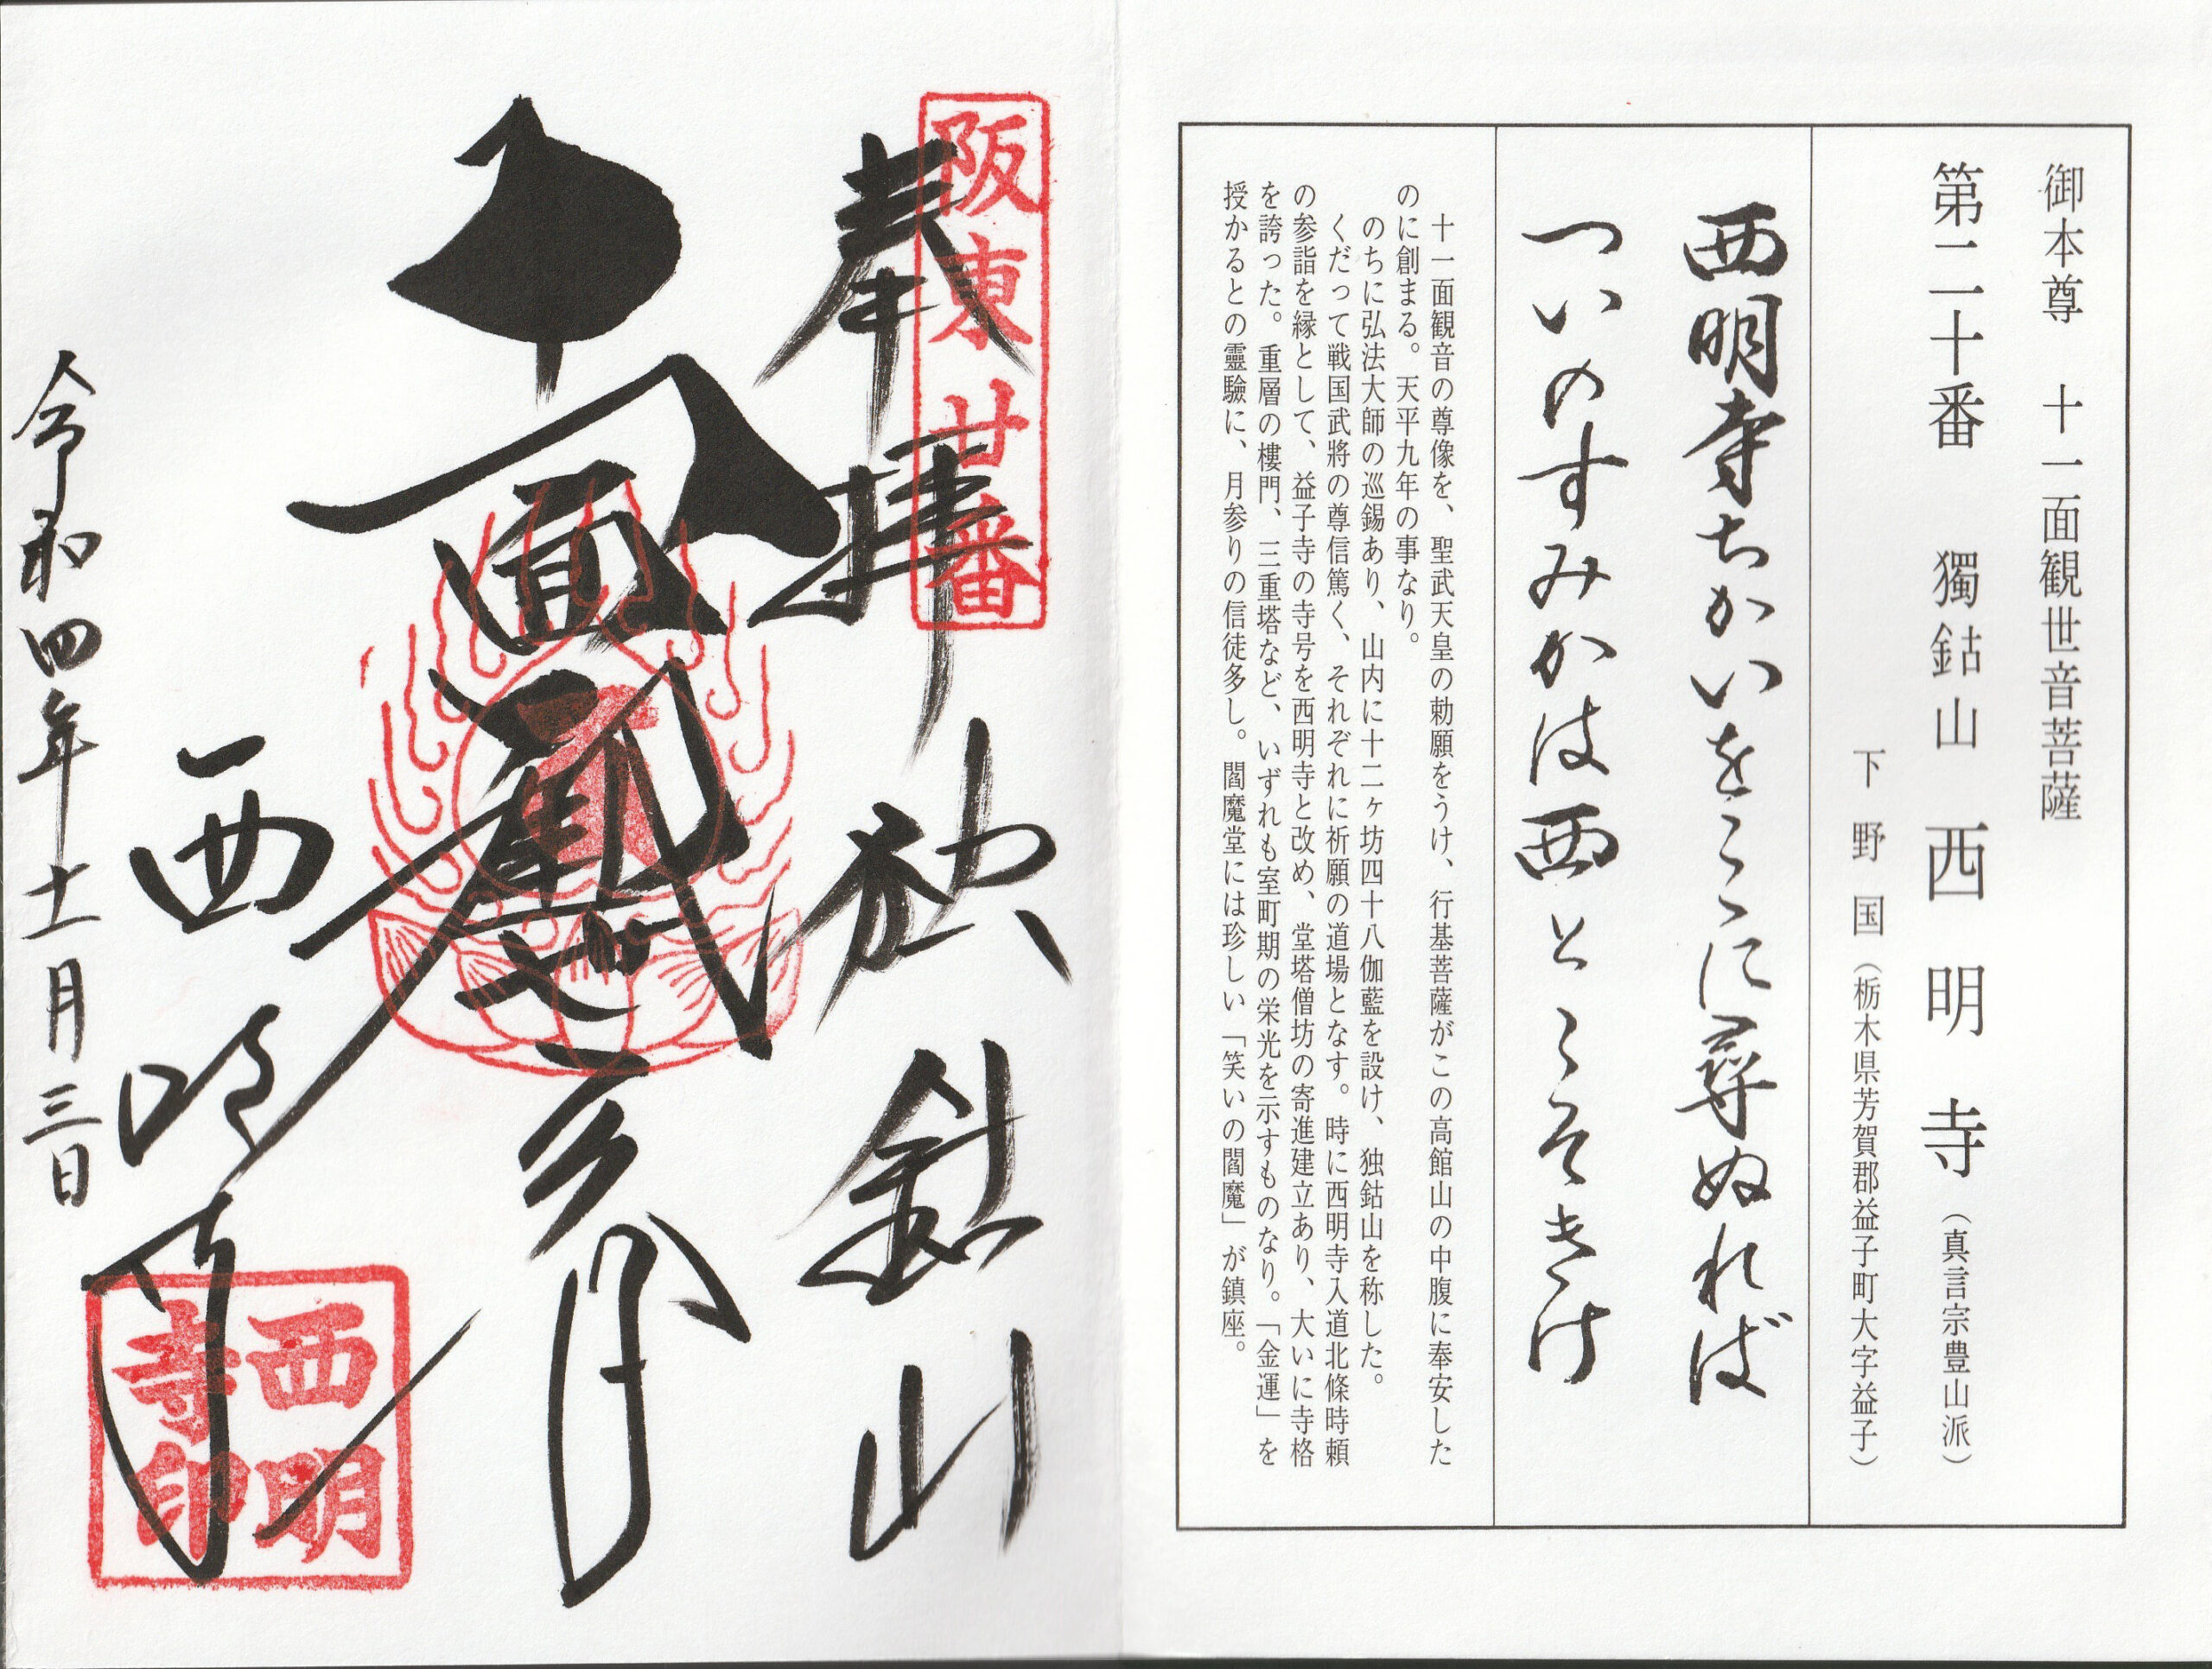 御本尊　十一面観世音菩薩
第二十番　獨鈷山　西明寺（真言宗豊山派）
下野国（栃木県芳賀郡益子町大字益子）
西明寺ちかいをこゝに尋ぬれば
ついのすみかは西とこゝそきけ
十一面観音の尊像を、聖武天皇の勅願をうけ、行基菩薩がこの高館山の中腹に奉安した
のに創まる。天平九年の事なり。
のちに弘法大師の巡錫あり、山内に十二ヶ坊四十八伽藍を設け、独鈷山を称した。
くだって戦国武將の尊信篤く、それぞれに祈願の道場となす。時に西明寺入道北條時頼
の参詣を縁として、益子寺の寺号を西明寺と改め、堂塔僧坊の寄進建立あり、大いに寺格
を誇った。重層の樓門、三重塔など、いずれも室町期の栄光を示すものなり。「金運」を
授かるとの靈驗に、月参りの信徒多し。閻魔堂には珍しい「笑いの閻魔」が鎮座。
阪東廿番
奉拝　独鈷山
十一面観世音
西明寺
西明寺印
令和四年十一月三日